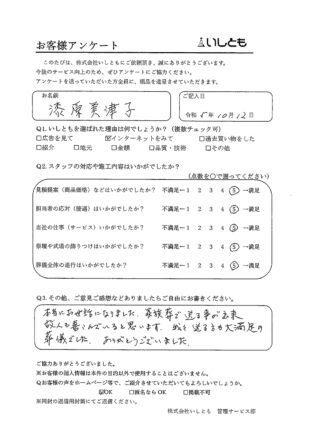 お客様アンケート
いしとも
このたびは、株式会社いしともにご依頼頂き、誠にありがとうございます。
今後のサービス向上のため、ぜひアンケートにご協力ください。
アンケートを送っていただいた方全員に、粗品を進呈させていただきます。
お名前
漆原美津子
ご記入日
令和 5年 10月 12日
Q1. いしともを選ばれた理由は何でしょうか？（複数チェック可）
□広告を見て ☑インターネットをみて □過去買い物をした
□紹介 □地元 □金額 □品質・技術 □その他
Q2. スタッフの対応や施工内容はいかがでしたか？
（点数を○で囲ってください）
見積提案（商品価格）などはいかがでしたか？ 不満足←1 2 3 4 ⑤→満足
担当者の応対（接遇）はいかがでしたか？ 不満足←1 2 3 4 ⑤→満足
当社の仕事（サービス）いかがでしたか？ 不満足←1 2 3 4 ⑤→満足
祭壇や式場の飾りつけはいかがでしたか？ 不満足←1 2 3 4 ⑤→満足
葬儀全体の進行はいかがでしたか？ 不満足←1 2 3 4 ⑤→満足
Q3. その他、ご意見ご感想などありましたらご自由にお書きください。
本当にお世話になりました。家族葬で送る事が出来
故人も喜こんでいると思います。残る送る方大満足の
葬儀でした。ありがとうございました。
ご協力ありがとうございました。
※お客様の個人情報は本件の目的以外で使用することはございません。
Qお客様の声をホームページ等で、ご紹介させていただいてもよろしいでしょうか。
☑OK □匿名ならOK □掲載不可
※同封の返信用封筒にてご送書ください。
株式会社いしとも 管理サービス部